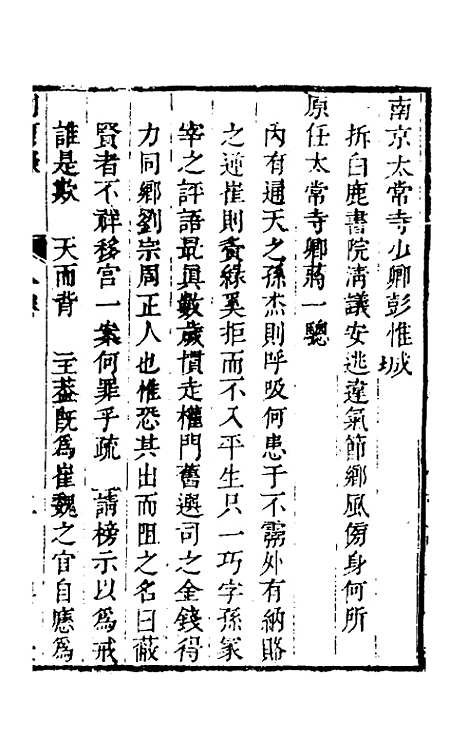 南京太常寺少卿彭惟城
拆白鹿書院清議安逃違氣節鄉風傍身何所
原任太常寺卿蔣一驄
內有通天之孫杰則呼吸何患于不霛外有納賂
之逆崔則夤緣奚拒而不入平生只一巧字孫冢
宰之評語最眞數歲慣走權門舊選司之金錢得
力同鄉劉宗周正人也惟恐其出而阻之名曰薇
賢者不祥移宮一案何罪乎疏 請榜示以為戒
誰是欺 天而背 主葢既為崔魏之官自應為